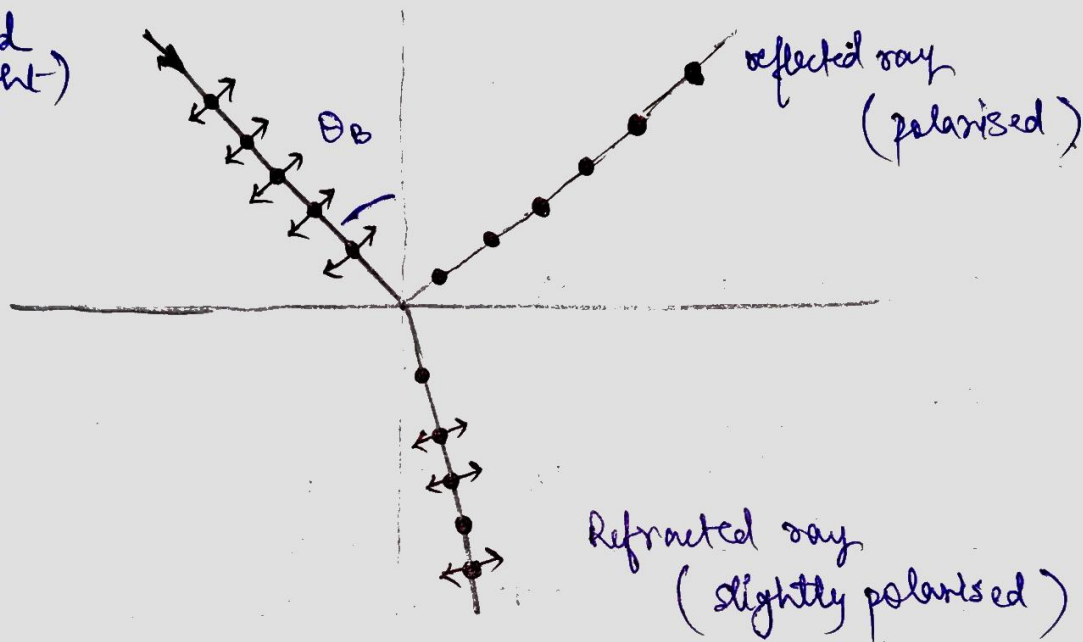 θB
reflected ray
(polarised)
Refracted ray
(slightly polarised)